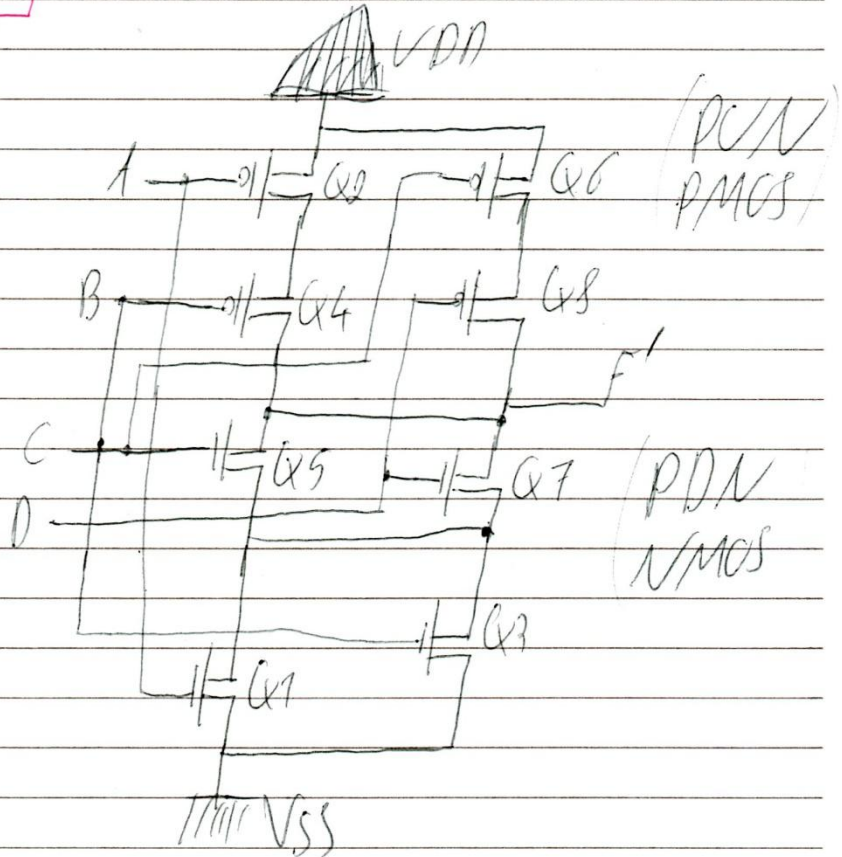 VDD
A
Q2
Q6
(PUN
PMOS)
B
Q4
Q8
F'
C
Q5
Q7
(PDN
NMOS
D
Q3
Q1
VSS